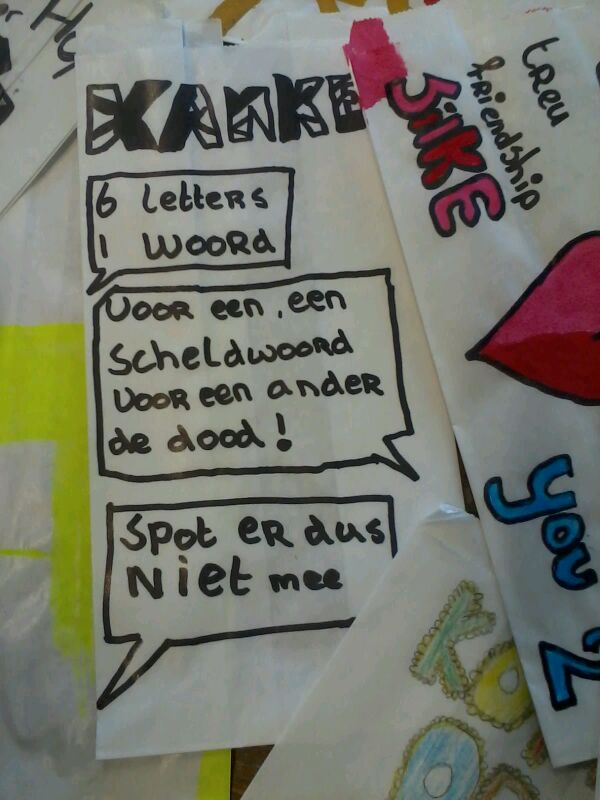 KANKE
6 letters
1 woord
Voor een, een
scheldwoord
voor een ander
de dood!
Spot er dus
Niet mee
treu
friendship
SilKE
you 2